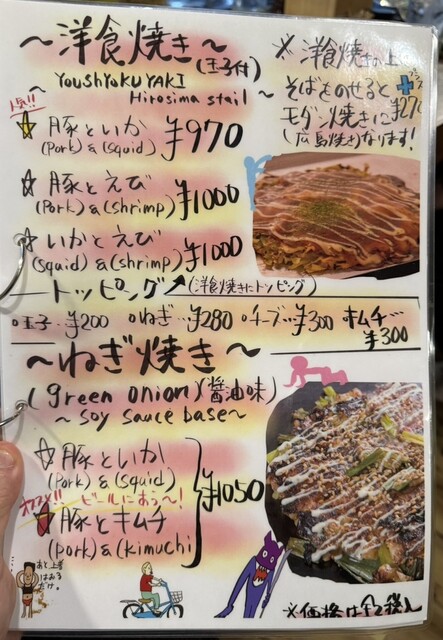 ～洋食焼き～
(玉子付)
YOUSHYOKUYAKI
Hirosima stail～
※洋食焼きの上に
そばをのせると
モダン焼きに
(広島焼き)なります!
プラス
+¥270
人気!!
☆豚といか ¥970
(Pork)&(squid)
☆豚とえび ¥1000
(Pork)&(shrimp)
☆いかとえび ¥1000
(squid)&(shrimp)
トッピング(洋食焼きにトッピング)
○玉子…¥200 ○ねぎ…¥280 ○チーズ…¥300 キムチ…¥300
～ねぎ焼き～
(green onion)(醤油味)
～soy sauce base～
☆豚といか
(Pork)&(squid)
¥1050
オススメ!!ビールにあう～!
☆豚とキムチ
(pork)&(kimuchi
あと上着
はおる
だけ。
※価格は全て税込